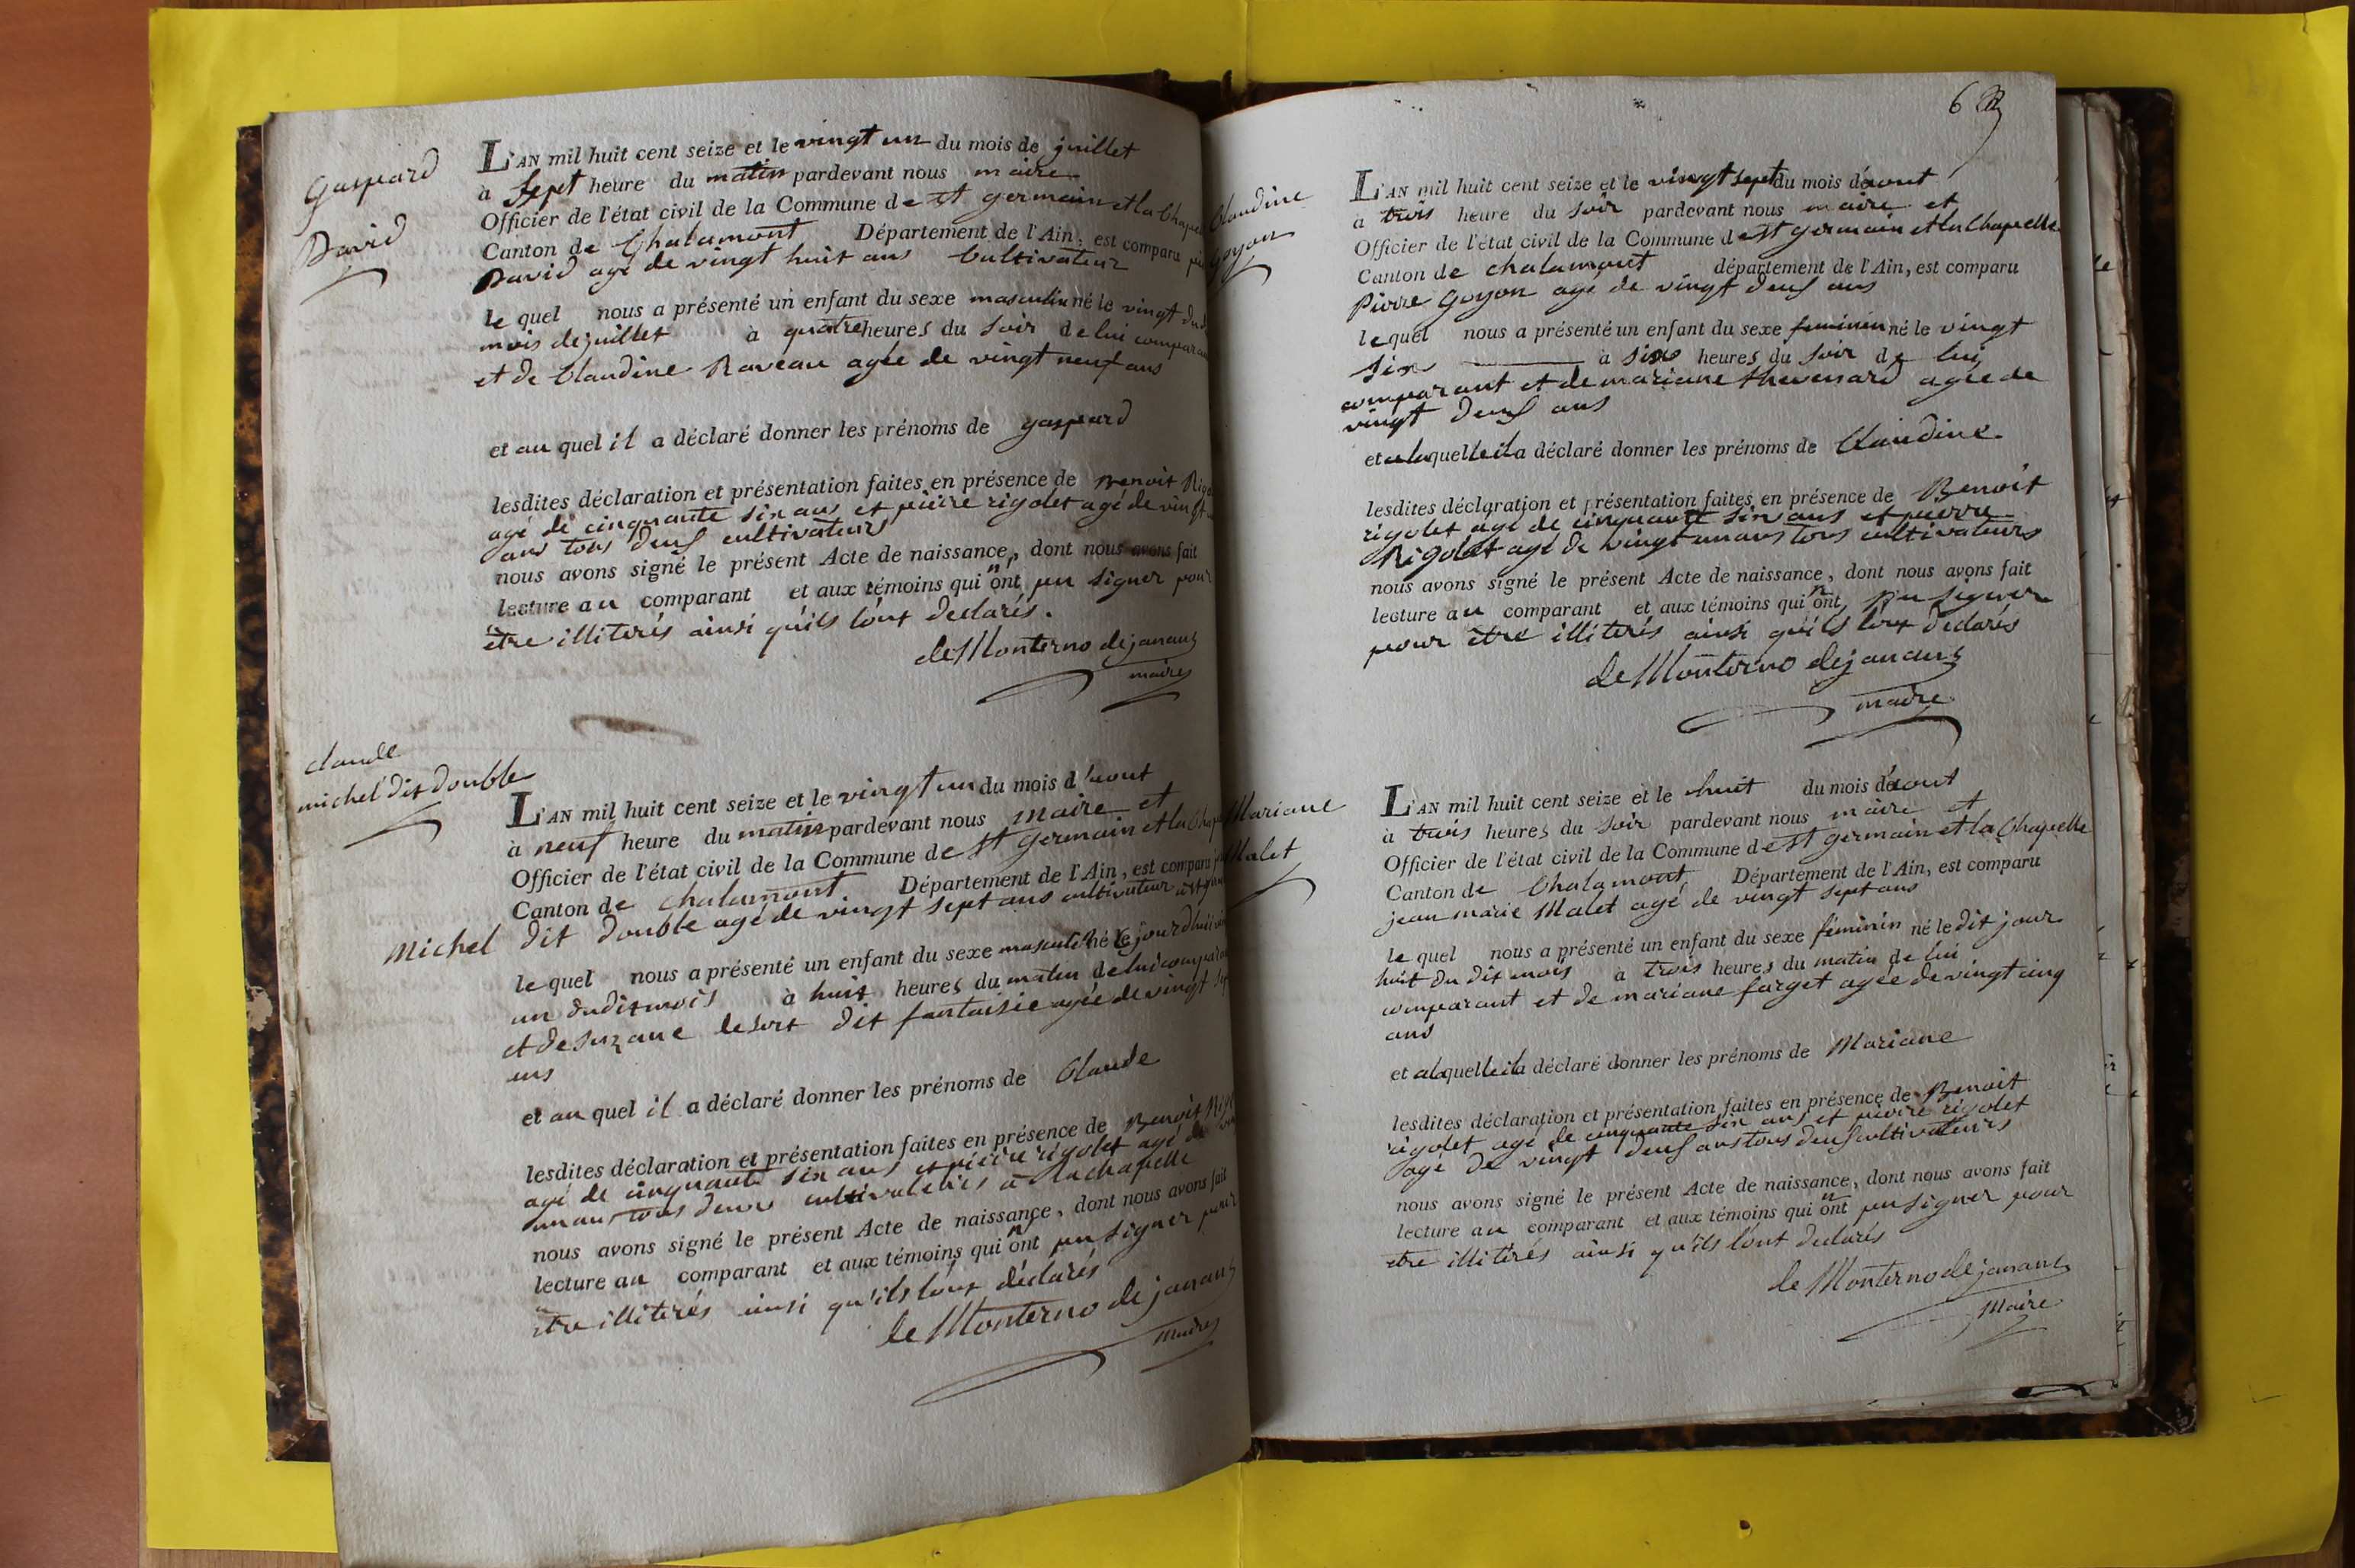 Gaspard
David
L'AN mil huit cent seize et le vingt un du mois de juillet
à sept heure du matin pardevant nous maire
Officier de l'état civil de la Commune de st germain et la Chapel
Canton de Chalamont Département de l'Ain, est comparu
David agé de vingt huit ans Cultivateur
le quel nous a présenté un enfant du sexe masculin né le vingt du
mois de juillet à quatre heures du soir de lui comparant
et de Claudine Raveau agée de vingt neuf ans
et au quel il a déclaré donner les prénoms de gaspard
lesdites déclaration et présentation faites en présence de Benoit Rigo
agé de cinquante six ans et pierre rigolet agé de vingt
ans tous deux cultivateurs
nous avons signé le présent Acte de naissance, dont nous avons fait
lecture au comparant et aux témoins qui n'ont pu signer pour
être illiterés ainsi qu'ils lont declarés.
de Monterno dejanaux
maire
claude
michel dit double
L'AN mil huit cent seize et le vingt un du mois d'aout
à neuf heure du matin pardevant nous maire et
Officier de l'état civil de la Commune de st germain et la Chap
Canton de chalamont Département de l'Ain, est comparu
Michel dit double agé de vingt sept ans cultivateur
le quel nous a présenté un enfant du sexe masculin né le jourdhui
un dudit mois à huit heures du matin de lui comparant
et de suzane lesort dit fantaisie agée de vingt
ans
et au quel il a déclaré donner les prénoms de Claude
lesdites déclaration et présentation faites en présence de Benoit Rigo
agé de cinquante six ans et pierre rigolet agé de
un ans tous deux cultivateurs a la chapelle
nous avons signé le présent Acte de naissance, dont nous avons fait
lecture au comparant et aux témoins qui n'ont pu signer pour
etre illiterés ainsi qu'ils lont déclarés
de Monterno dejanaux
maire
6
Claudine
Goyon
L'AN mil huit cent seize et le vingt sept du mois d'aout
à trois heure du soir pardevant nous maire et
Officier de l'état civil de la Commune de st germain et la Chapelle
Canton de chalamont département de l'Ain, est comparu
Pierre Goyon agé de vingt deux ans
le quel nous a présenté un enfant du sexe feminin né le vingt
six à six heures du soir de lui
comparant et de mariane thevenard agée de
vingt deux ans
et a laquelle il a déclaré donner les prénoms de Claudine
lesdites déclaration et présentation faites en présence de Benoit
rigolet agé de cinquante six ans et pierre
Rigolet agé de vingt un ans tous cultivateurs
nous avons signé le présent Acte de naissance, dont nous avons fait
lecture au comparant et aux témoins qui n'ont pu signer
pour être illiterés ainsi qu'ils lont declarés
de Monterno dejanaux
maire
Mariane
Malet
L'AN mil huit cent seize et le huit du mois d'aout
à trois heures du soir pardevant nous maire et
Officier de l'état civil de la Commune de st germain et la Chapelle
Canton de Chalamont Département de l'Ain, est comparu
jean marie Malet agé de vingt sept ans
le quel nous a présenté un enfant du sexe féminin né le dit jour
huit du dit mois à trois heures du matin de lui
comparant et de mariane farget agée de vingt cinq
ans
et a laquelle il a déclaré donner les prénoms de Mariane
lesdites déclaration et présentation faites en présence de Benoit
rigolet agé de cinquante six ans et pierre rigolet
agé de vingt deux ans tous deux cultivateurs
nous avons signé le présent Acte de naissance, dont nous avons fait
lecture au comparant et aux témoins qui n'ont pu signer pour
etre illiterés ainsi qu'ils lont declarés
de Monterno dejanaux
Maire